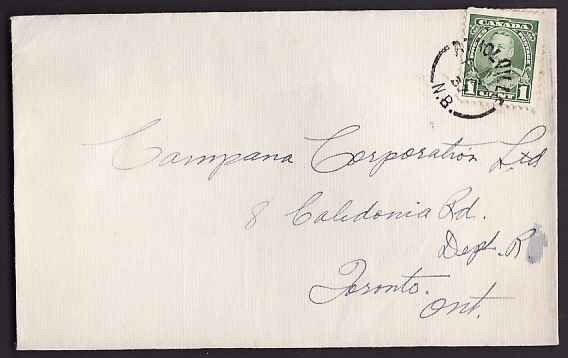 CANADA
1 CENT 1
N.B.
Campana Corporation Ltd
8 Caledonia Rd.
Dept. R
Toronto.
Ont.